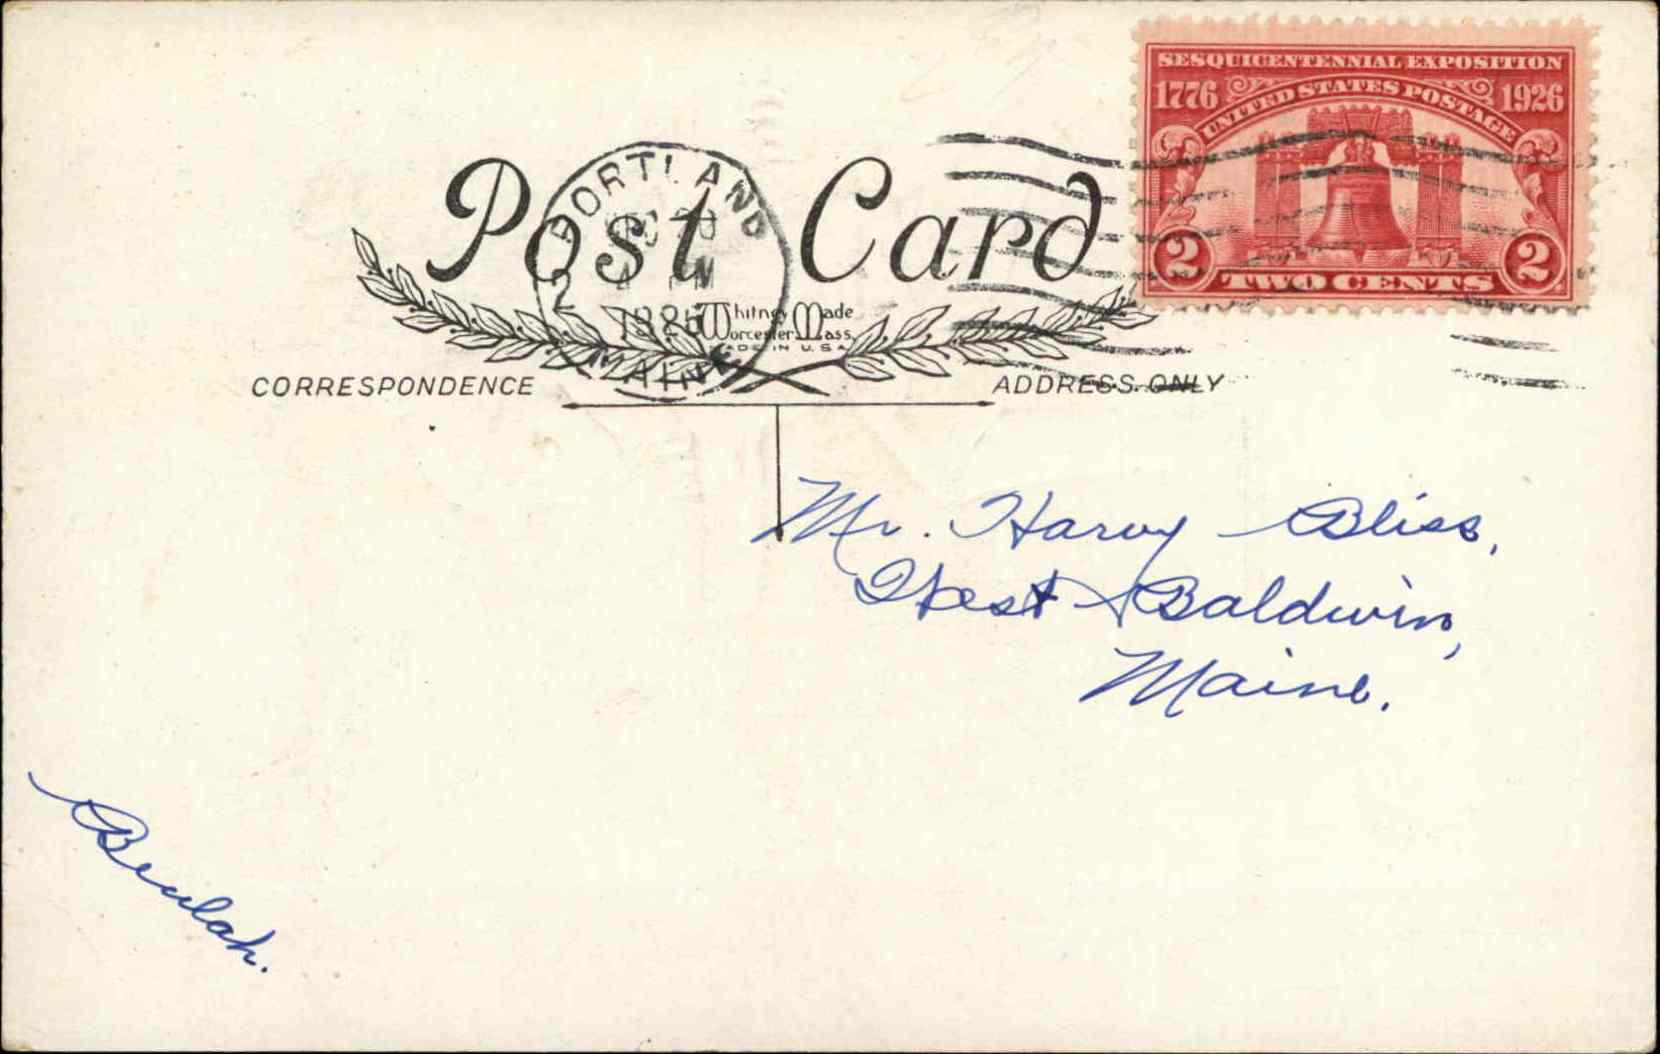 SESQUICENTENNIAL EXPOSITION
1776 UNITED STATES POSTAGE 1926
2 TWO CENTS 2
Post Card
PORTLAND
2
MAINE
Whitney Made
Worcester Mass.
MADE IN U.S.A.
CORRESPONDENCE
ADDRESS ONLY
Mr. Harvy Bliss,
West Baldwin,
Maine.
Beulah.